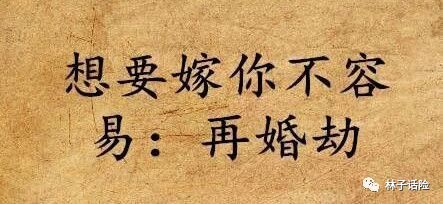 想要嫁你不容
易：再婚劫
林子话险